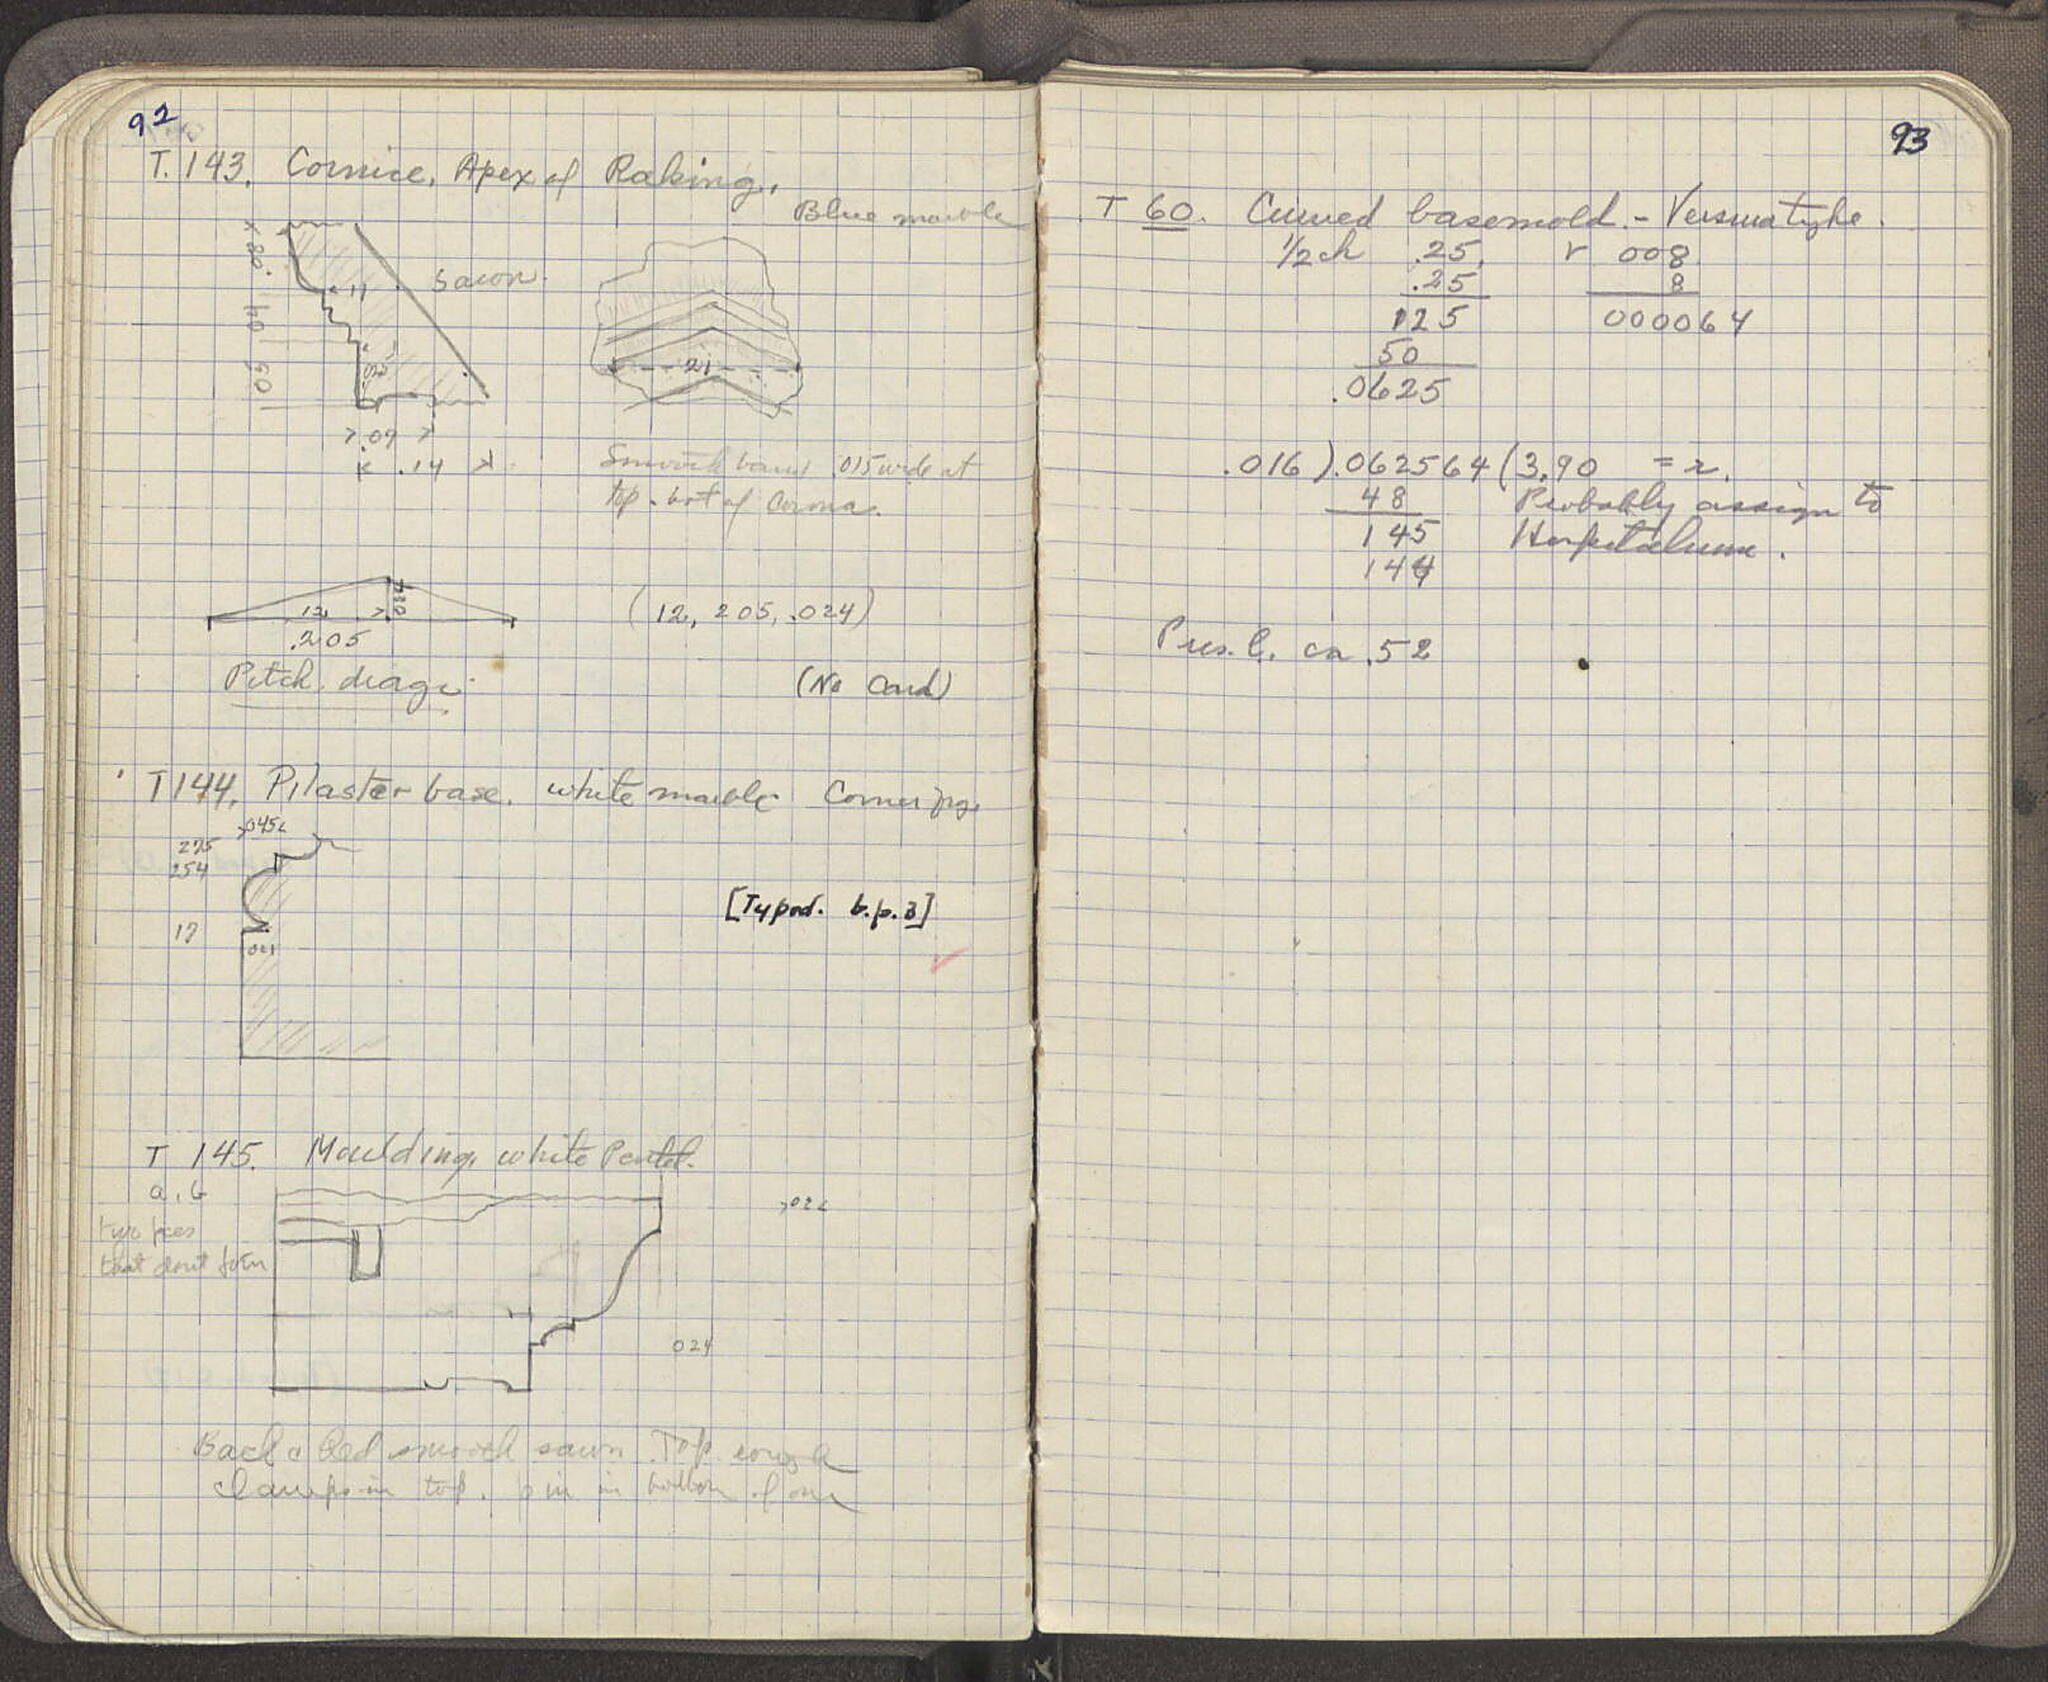 92
T. 143. Cornice, Apex of Raking.
Blue marble
.08
.11
Sawn.
04
05
.21
.07
.14
Smooth band .015 wide at
top & bot of Corona.
12
.205
(12, 205, .024)
Pitch diagr.
(No Card)
T 144. Pilaster base. white marble Corner frg.
.045
275
254
17
021
[Typed. b.p.3]
T 145. Moulding, white Pentel.
a, b
two pces
that dont join
.02
024
Back & bed smooth sawn. Top rough
clamps in top. pin in bottom of one
93
T 60. Curved basemold.
1/2 ch .25 r 008
.25 8
125 000064
50
.0625
.016 ) .062564 ( 3.90 = r.
48 Probably assign to
145
144
Pres. l. ca .52